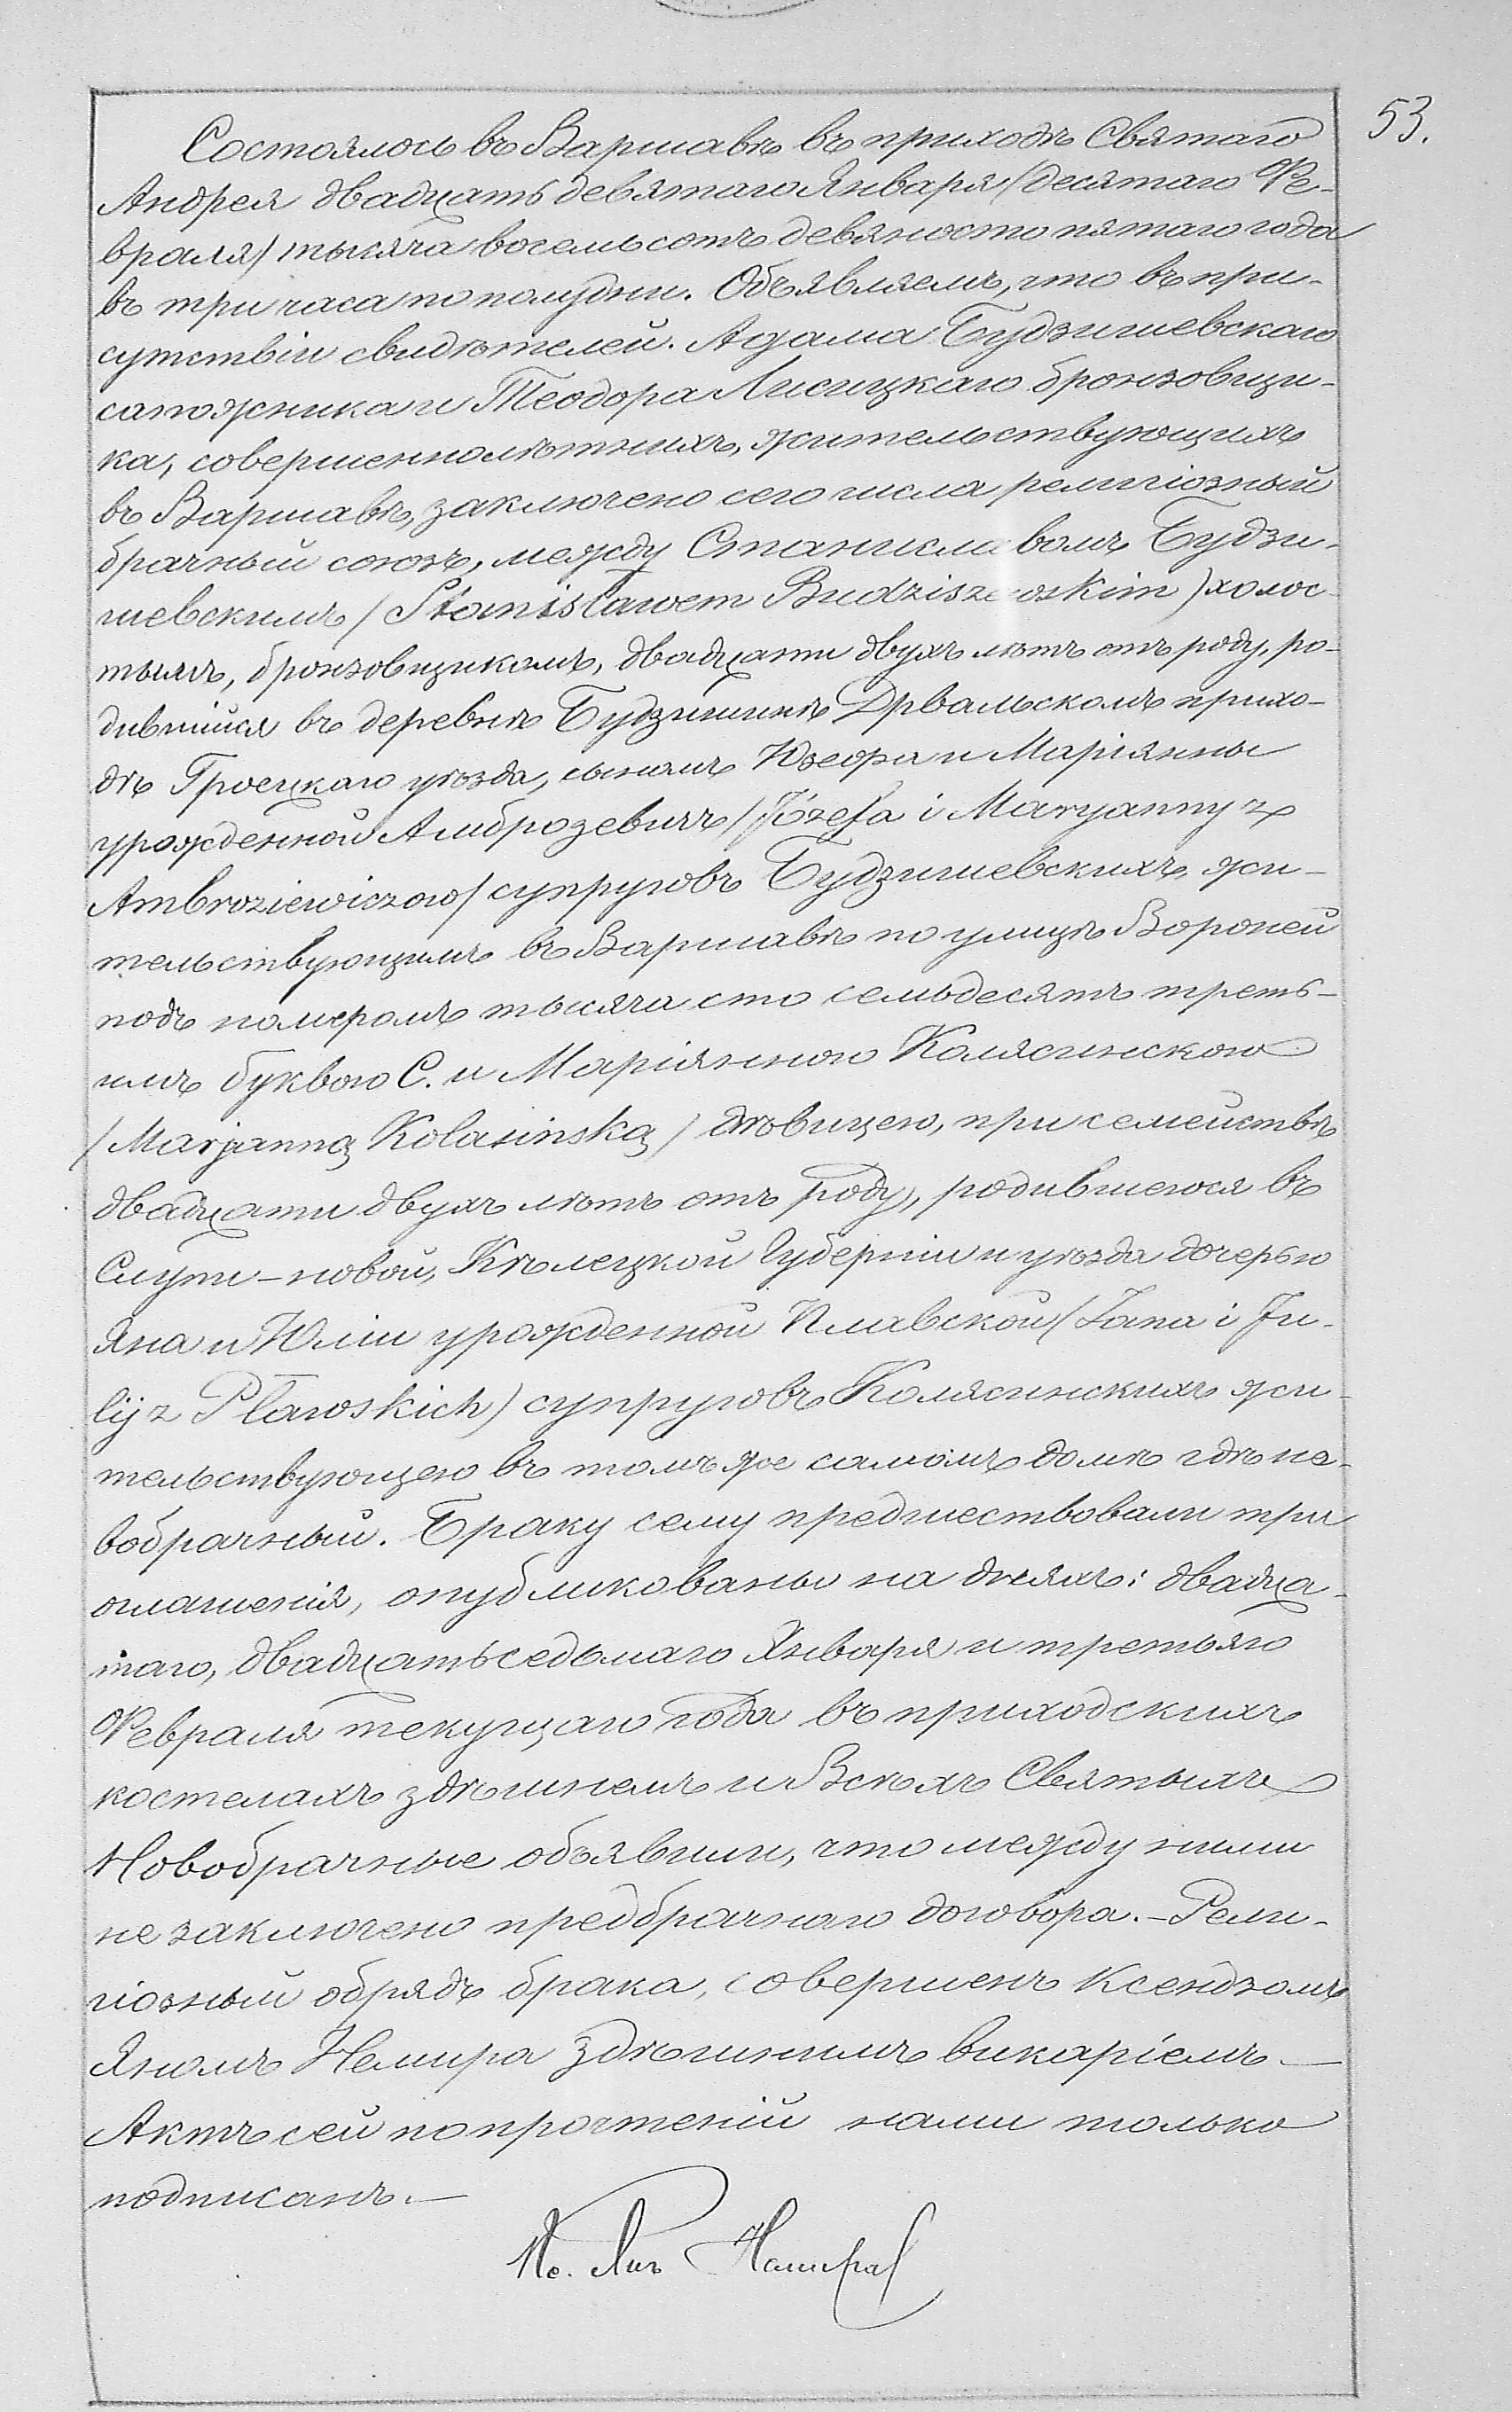 53.
Состоялось въ Варшавѣ въ приходѣ Святаго
Андрея двадцать девятаго Января (десятаго Фе-
враля) тысяча восемьсотъ девяносто пятаго года
въ три часа по полудни. Объявляемъ, что въ при-
сутствіи свидѣтелей. Адама Будзишевскаго
сапожника и Теодора Лисицкаго бронзовщи-
ка, совершеннолѣтнихъ, жительствующихъ
въ Варшавѣ, заключено сего числа религіозный
брачный союзъ, между Станиславомъ Будзи-
шевскимъ (Stanisławem Budziszewskim) холос-
тымъ, бронзовщикомъ, двадцати двухъ лѣтъ отъ роду, ро-
дившійся въ деревнѣ Будзишинѣ Дрвальскомъ прихо-
дѣ Гроецкаго уѣзда, сыномъ Юзефа и Маріянны
урожденной Амброзевичъ (Józefa i Maryanny z
Ambroziewiczow) супруговъ Будзишевскихъ, жи-
тельствующимъ въ Варшавѣ по улицѣ Вороней
подъ номеромъ тысяча сто семьдесятъ треть-
имъ буквою С. и Маріянною Колясинскою
(Marjanną Kolasinską) дѣвицею, при семействѣ
двадцати двухъ лѣтъ отъ роду, родившеюся въ
Слупи-новой, Кѣлецкой Губерніи и уѣзда дочерью
Яна и Юліи урожденной Плавской (Jana i Ju-
lij z Pławskich) супруговъ Колясинскихъ жи-
тельствующею въ томъ же самомъ домѣ гдѣ но-
вобрачный. Браку сему предшествовали три
оглашенія, опубликованы на дняхъ: двадца-
таго, двадцать седьмаго Января и третьяго
Февраля текущаго года въ приходскихъ
костелахъ здѣшнемъ и Всѣхъ Святыхъ
Новобрачные объявили, что между ними
не заключено предбрачнаго договора. - Рели-
гіозный обрядъ брака, совершенъ Ксендзомъ
Яномъ Немира здѣшнимъ викаріемъ. —
Актъ сей по прочтеніи нами только
подписанъ. —
Кс. Янъ Немира